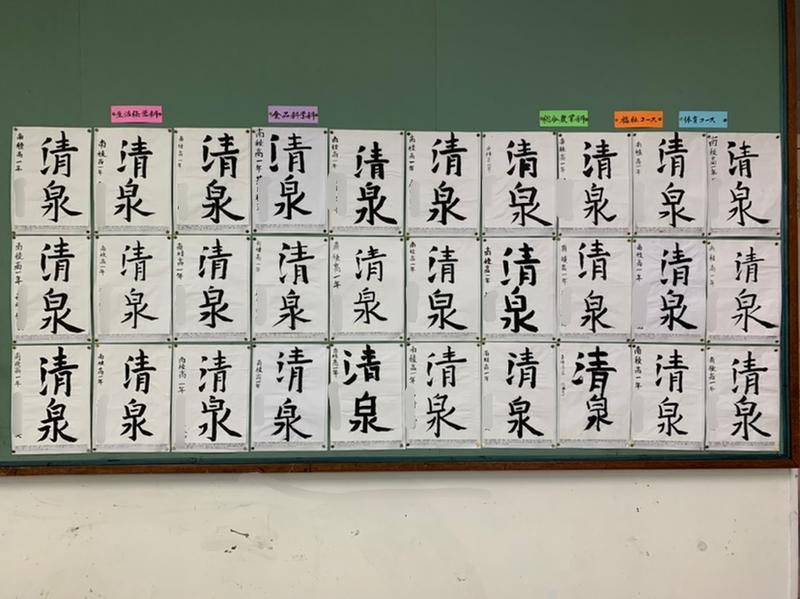 生活経営科
食品科学科
総合農業科
福祉コース
体育コース
清泉
南稜高一年
清泉
南稜高一年
清泉
南稜高一年
清泉
南稜高一年
清泉
南稜高一年
清泉
南稜高一年
清泉
南稜高一年
清泉
南稜高一年
清泉
南稜高一年
清泉
南稜高一年
清泉
南稜高一年
清泉
南稜高一年
清泉
南稜高一年
清泉
南稜高一年
清泉
南稜高一年
清泉
南稜高一年
清泉
南稜高一年
清泉
南稜高一年
清泉
南稜高一年
清泉
南稜高一年
清泉
南稜高一年
清泉
南稜高一年
清泉
南稜高一年
清泉
南稜高一年
清泉
南稜高一年
清泉
南稜高一年
清泉
南稜高一年
清泉
清泉
南稜高一年
清泉
南稜高一年